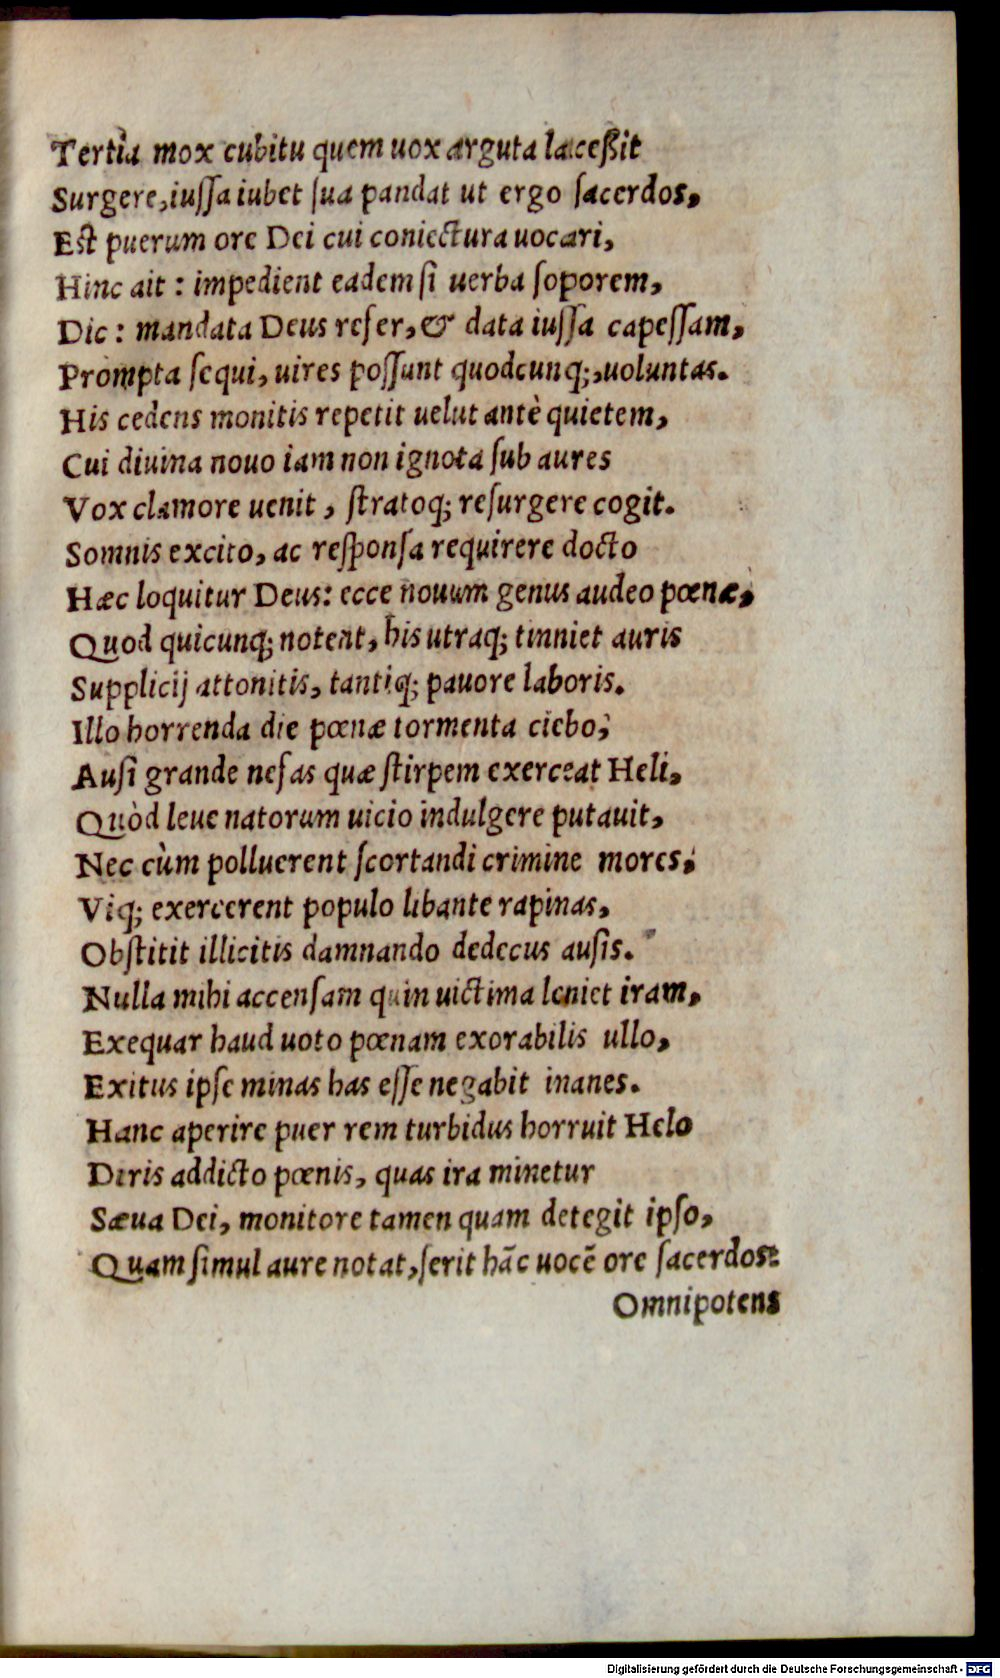 Tertia mox cubitu quem uox arguta laceßit
Surgere, iuſſa iubet ſua pandat ut ergo ſacerdos,
Eſt puerum ore Dei cui coniectura uocari,
Hinc ait : impedient eadem ſi uerba ſoporem,
Dic : mandata Deus refer, & data iuſſa capeſſam,
Prompta ſequi, uires poſſunt quodcunq;, uoluntas.
His cedens monitis repetit uelut antè quietem,
Cui diuina nouo iam non ignota ſub aures
Vox clamore uenit, ſtratoq; reſurgere cogit.
Somnis excito, ac reſponſa requirere docto
Hæc loquitur Deus: ecce nouum genus audeo pœnæ,
Quod quicunq; notent, his utraq; tinniet auris
Supplicij attonitis, tantiq; pauore laboris.
Illo horrenda die pœnæ tormenta ciebo,
Auſi grande nefas quæ ſtirpem exerceat Heli,
Quòd leue natorum uicio indulgere putauit,
Nec cùm polluerent ſcortandi crimine mores,
Viq; exercerent populo libante rapinas,
Obſtitit illicitis damnando dedecus auſis.
Nulla mihi accenſam quin uictima leniet iram,
Exequar haud uoto pœnam exorabilis ullo,
Exitus ipſe minas has eſſe negabit inanes.
Hanc aperire puer rem turbidus horruit Helo
Diris addicto pœnis, quas ira minetur
Sæua Dei, monitore tamen quam detegit ipſo,
Quam ſimul aure notat, ſerit hāc uocē ore ſacerdos:
Omnipotens
Digitalisierung gefördert durch die Deutsche Forschungsgemeinschaft - DFG